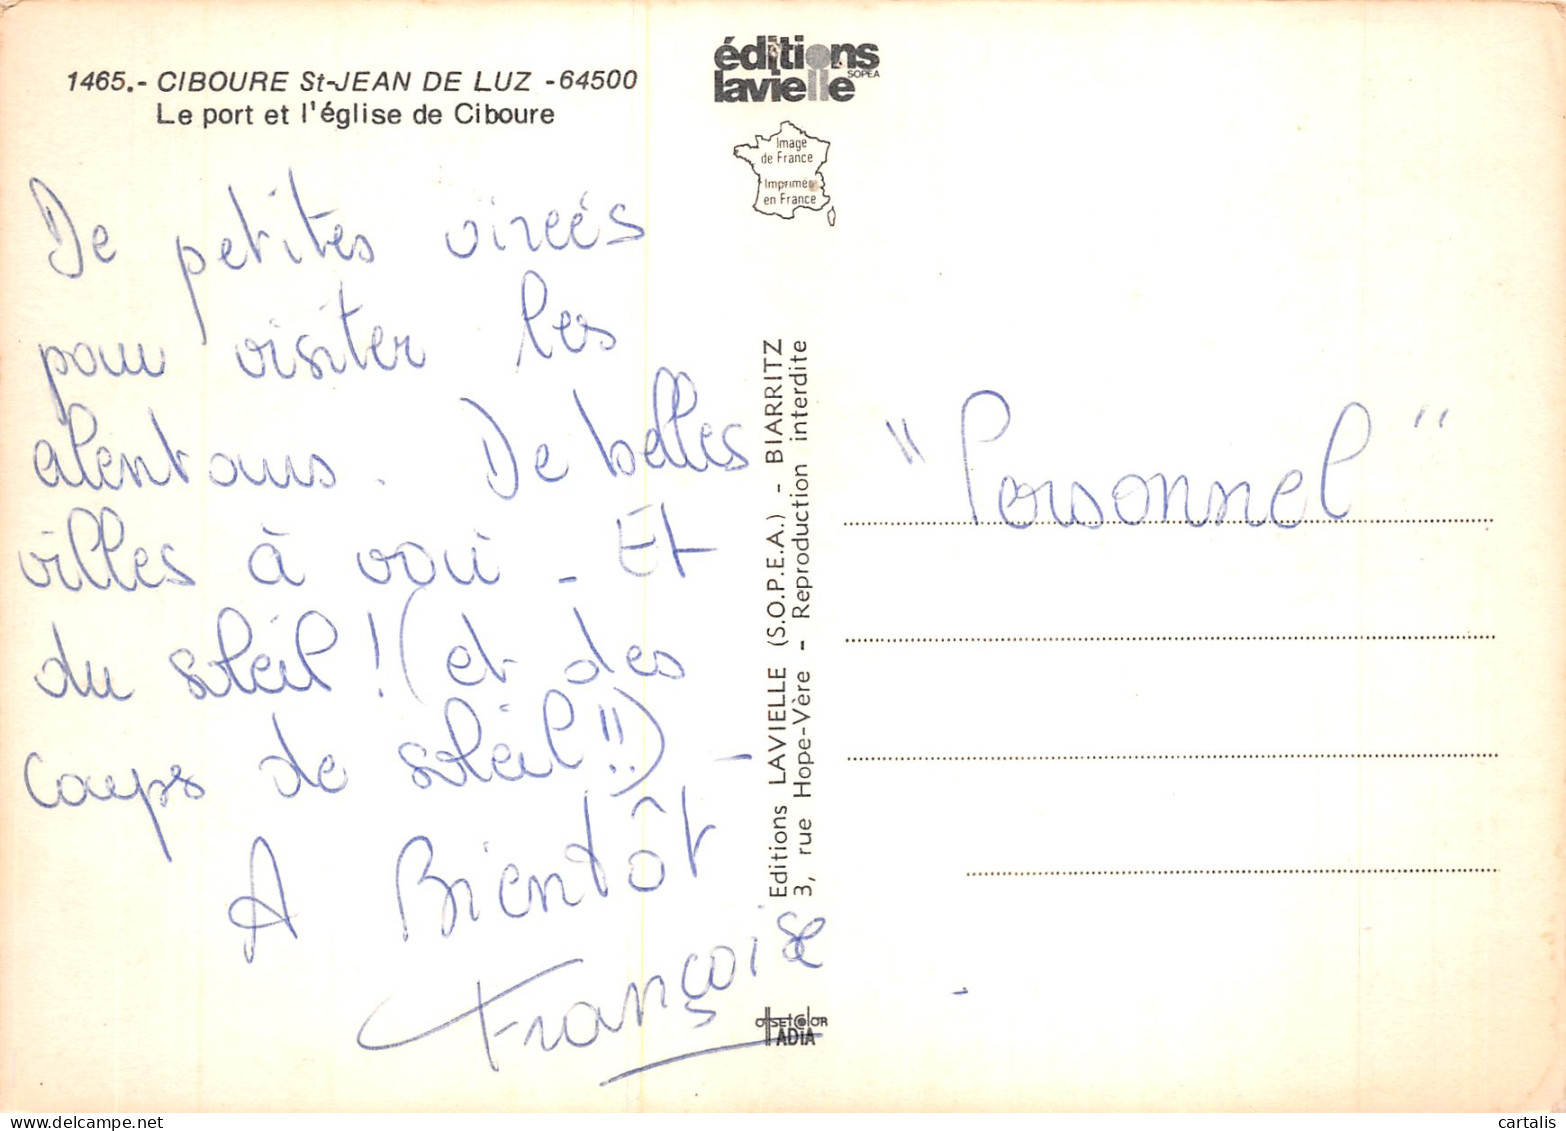 1465.- CIBOURE St-JEAN DE LUZ -64500
Le port et l'église de Ciboure
De petites virées
pour visiter les
alentours. De belles
villes à voir - Et
du soleil ! (et des
coups de soleil !!) -
A Bientôt
Françoise
éditions
lavielle
SOPEA
Image
de France
Imprimée
en France
Editions LAVIELLE (S.O.P.E.A.) - BIARRITZ
3, rue Hope-Vère - Reproduction interdite
offsetcolor
ADIA
"Personnel"
cartalis